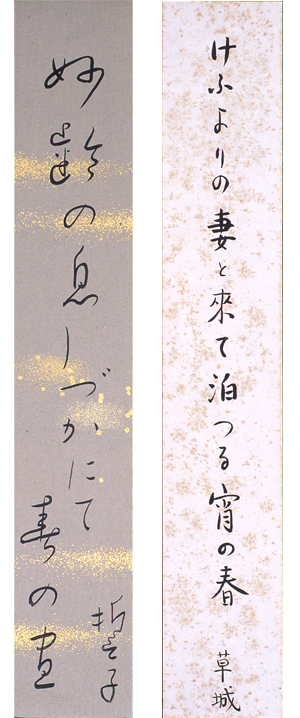 けふよりの妻と來て泊つる宵の春
草城
妙齡の息しづかにて
春の晝
誓子